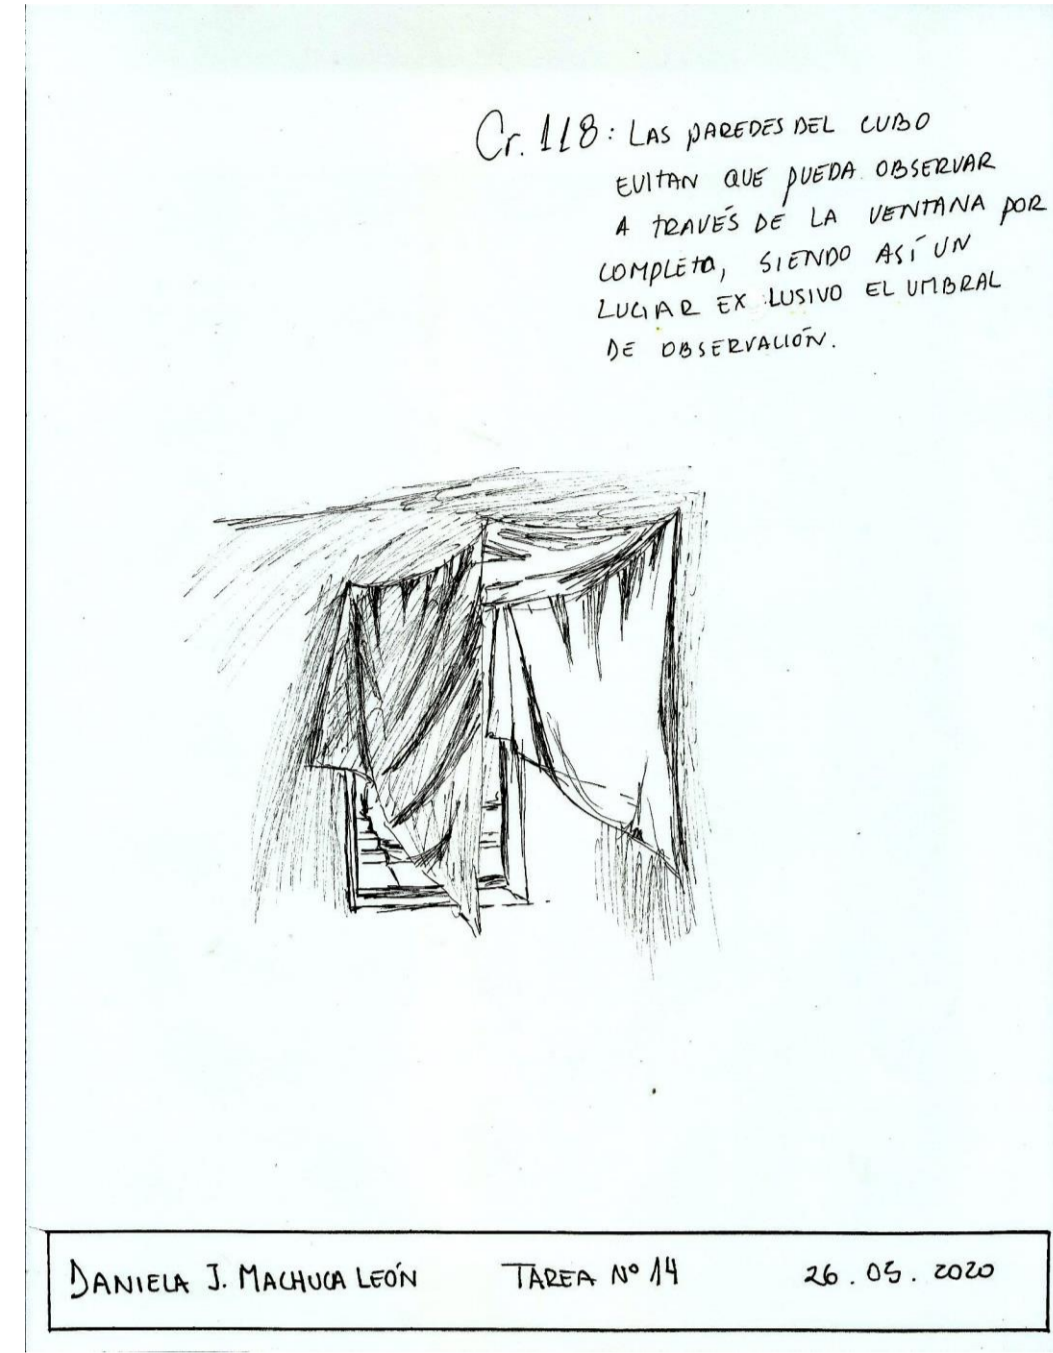 Cr. 118: LAS PAREDES DEL CUBO
EVITAN QUE PUEDA OBSERVAR
A TRAVÉS DE LA VENTANA POR
COMPLETO, SIENDO ASÍ UN
LUGAR EX LUSIVO EL UMBRAL
DE OBSERVACIÓN.
DANIELA J. MACHUCA LEÓN TAREA Nº 14 26.05.2020